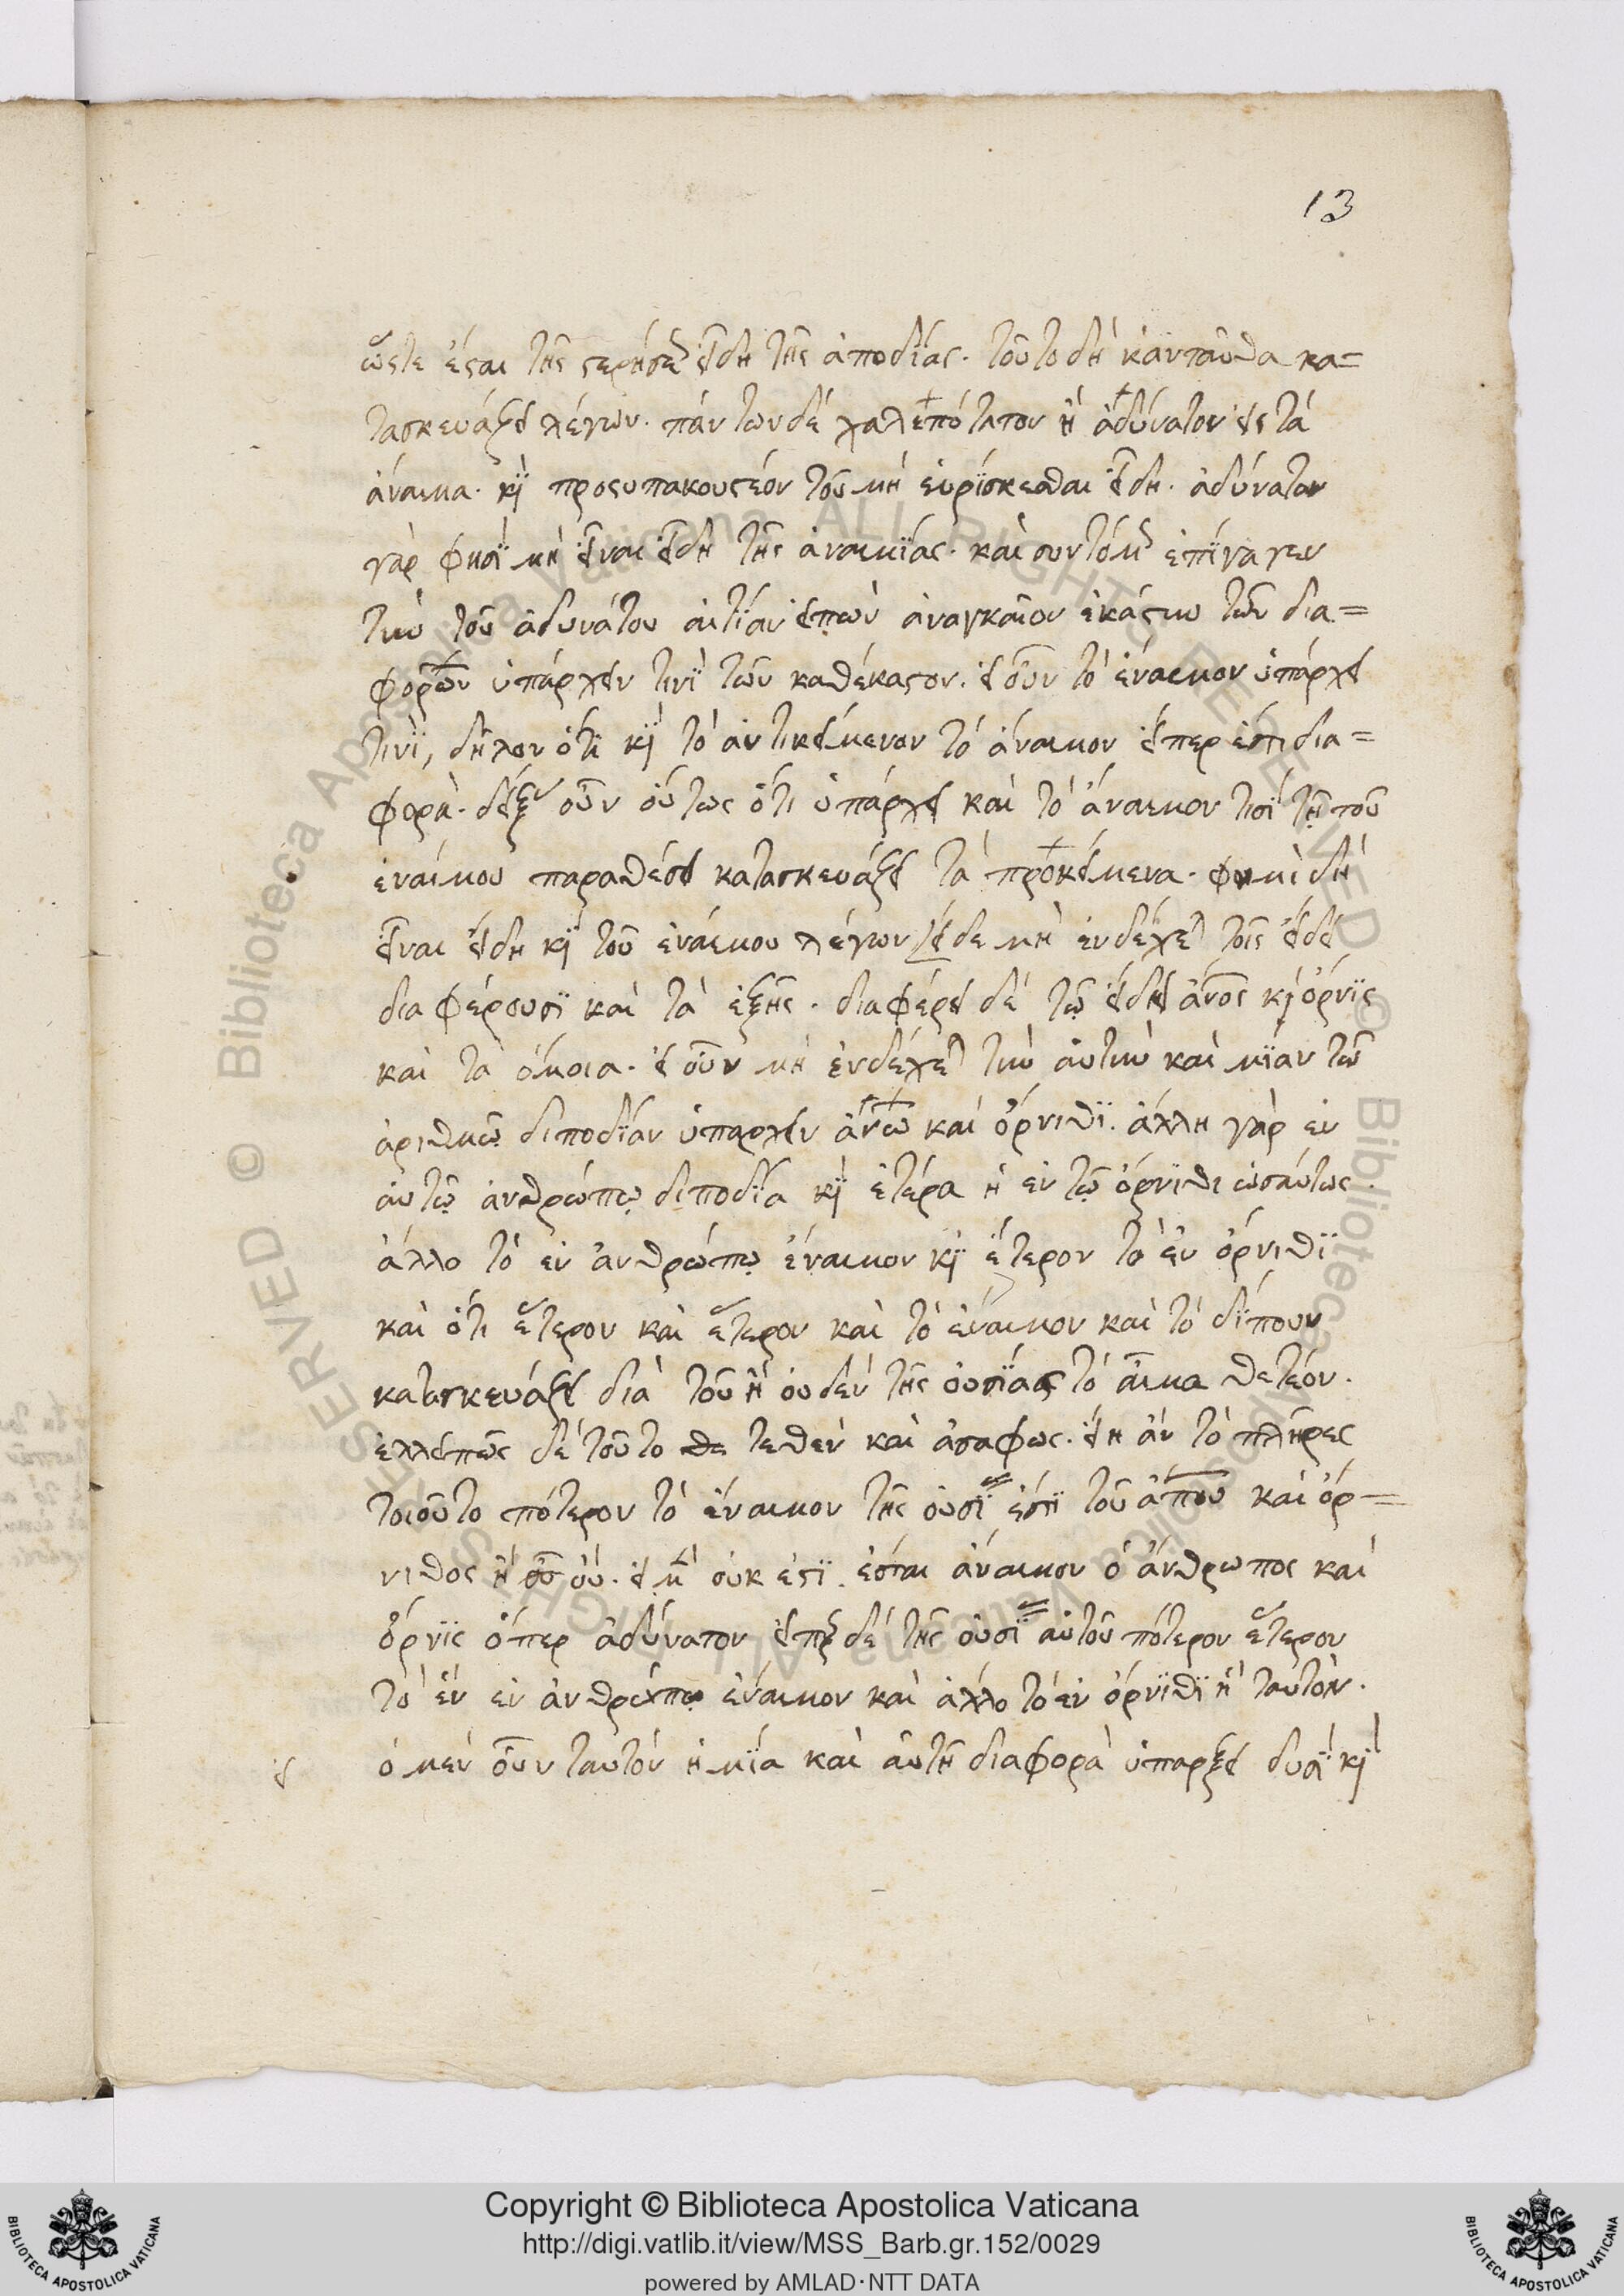 13
ὥστε ἔσται τῆς στερήσεως εἴδη τῆς ἀποδίας. τοῦτο δὴ κἀνταῦθα κα=
τασκευάζει λέγων. πάντων δὲ χαλεπότατον ἢ ἀδύνατον εἰς τὰ
ἄναιμα. καὶ προσυπακουστέον τοῦ μὴ εὑρίσκεσθαι εἴδη. ἀδύνατον
γὰρ φησὶ μὴ εἶναι εἴδη τῆς ἀναιμίας. καὶ συντόμως ἐπήγαγεν
τὴν τοῦ ἀδυνάτου αἰτίαν εἰπὼν ἀναγκαῖον ἑκάστην τῶν δια=
φορῶν ὑπάρχειν τινὶ τῶν καθέκαστον. εἰ οὖν τὸ ἔναιμον ὑπάρχει
τινὶ, δῆλον ὅτι καὶ τὸ ἀντικείμενον τὸ ἄναιμον εἴπερ ἐστι δια=
φορὰ. οὖν οὕτως ὅτι ὑπάρχει καὶ τὸ ἄναιμον τισὶ τῇ τοῦ
ἐναίμου παραθέσει κατασκευάζει τὰ προκείμενα. φημὶ δὴ
εἶναι εἴδη καὶ τοῦ ἐναίμου λέγων εἰ δε μὴ ἐνδέχεται τοῖς εἴδει
διαφέρουσι καὶ τὰ ἑξῆς. διαφέρει δὲ τῷ εἴδει ἄνος καὶ ὄρνις
καὶ τὰ ὅμοια. εἰ οὖν μὴ ἐνδέχεται τὴν αὐτὴν καὶ μίαν τῶ
ἀριθμῶ διποδίαν ὑπάρχειν ἀνω καὶ ὄρνιθι. ἄλλη γὰρ ἐν
αὐτῷ ἀνθρώπῳ διποδία καὶ ἑτέρα ἡ ἐν τῷ ὄρνιθι ὡσαύτως.
ἄλλο τὸ ἐν ἀνθρώπῳ ἔναιμον καὶ ἕτερον τὸ ἐν ὄρνιθι
καὶ ὅτι ἕτερον καὶ ἕτερον καὶ τὸ ἔναιμον καὶ τὸ δίπουν
κατασκευάζει διὰ τοῦ ἢ οὐδὲν τῆς οὐσίας τὸ αἷμα θετέον.
ἐλλειπῶς δὲ τοῦτο τεθὲν καὶ ἀσαφως. εἴη ἂν τὸ πλῆρες
τοιοῦτο πότερον τὸ ἔναιμον τῆς οὐσί ἐστὶ τοῦ ἀπου καὶ ὄρ=
νιθος ἢ οὔ. εἰ μὲν οὐκ ἐστὶ. ἔσται ἄναιμον ὁ ἄνθρωπος καὶ
ὄρνις ὅπερ ἀδύνατον εἴπερ δὲ τῆς οὐσί αὐτοῦ πότερον ἕτερον
τὸ ἓν ἐν ἀνθρώπῳ ἔναιμον καὶ ἄλλο τὸ ἐν ὄρνιθι ἢ ταὐτὸν.
ὁ μὲν οὖν ταυτὸν ἡ μία καὶ αὐτὴ διαφορὰ ὑπάρξει δυσὶ καὶ
εἰ
Copyright © Biblioteca Apostolica Vaticana
http://digi.vatlib.it/view/MSS_Barb.gr.152/0029
powered by AMLAD·NTT DATA